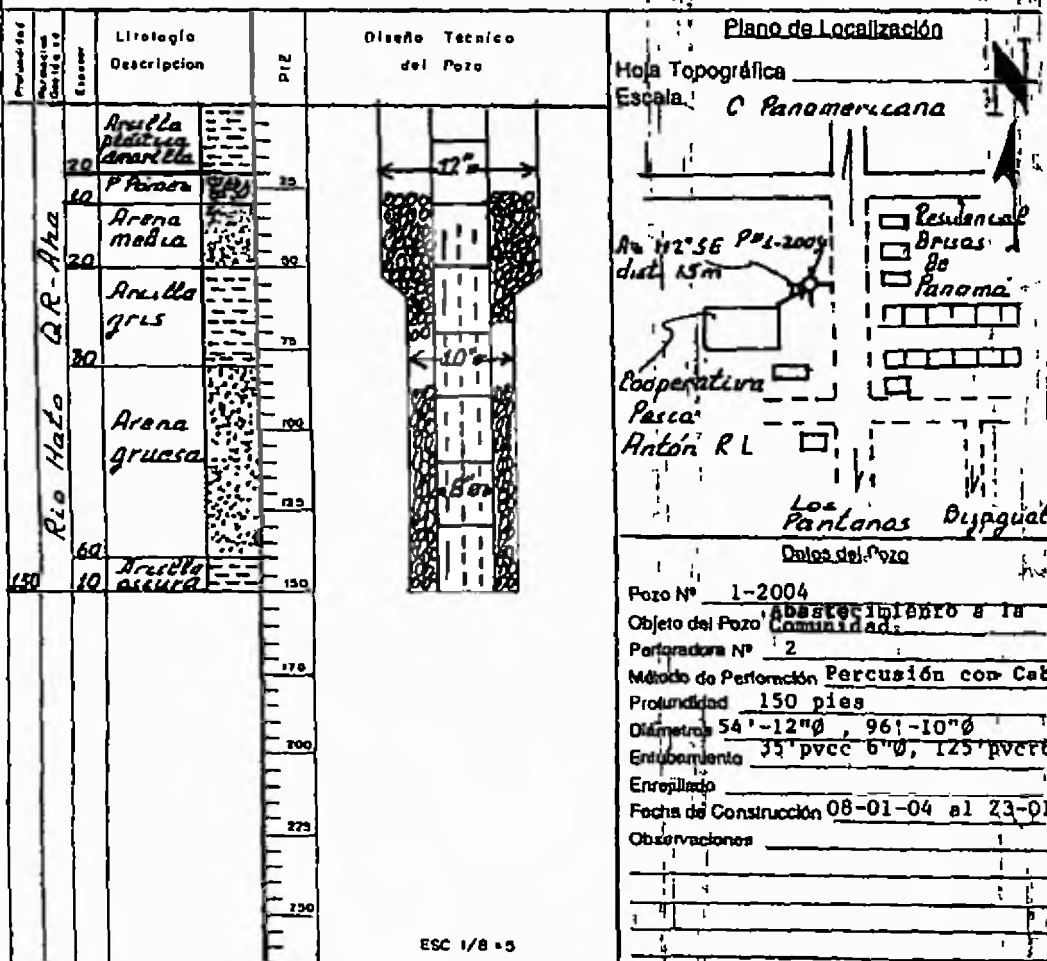 Profundidad
Formacion
Espesor
Litología
Descripcion
PIE
Diseño Técnico
del Pozo
20
Arcilla
plástica
amarilla
10
P Pomez
20
Arena
media
30
Arcilla
gris
60
Arena
gruesa
150
10
Arcilla
oscura
Río Hato QR-Aha
25
50
75
100
125
150
175
200
225
250
12"ø
10"ø
6"ø
ESC 1/8 = 5
Plano de Localización
Hoja Topográfica
Escala
C Panamericana
N
Az 112° SE
dist. 15m
Pº 1-2004
Residencial
Brisas
de
Panamá
Cooperativa
Pesca
Antón R L
Los
Pantanos
Datos del Pozo
Pozo Nº 1-2004
Objeto del Pozo Abastecimiento a la
Comunidad.
Perforadora Nº 2
Método de Perforación Percusión con Cab
Profundidad 150 pies
Diámetros 54'-12"Ø , 96'-10"Ø
Entubamiento 35'pvcc 6"Ø, 125'pvcr6
Enrejillado
Fecha de Construcción 08-01-04 al 23-01
Observaciones